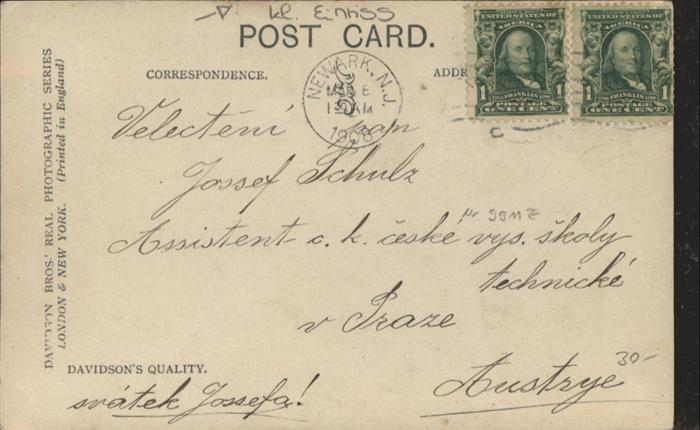 kl. Einriss
POST CARD.
CORRESPONDENCE.
ADDR
NEWARK, N.J.
1908
UNITED STATES OF AMERICA
1 FRANKLIN 1
POSTAGE
ONE CENT
UNITED STATES OF AMERICA
1 FRANKLIN 1
POSTAGE
ONE CENT
DAVIDSON BROS.' REAL PHOTOGRAPHIC SERIES
LONDON & NEW YORK. (Printed in England)
Velectění pan
Jossef Schulz
Assistent c. k. české vys. školy
technické
v Praze
Austrye
30-
DAVIDSON'S QUALITY.
svátek Jossefa!